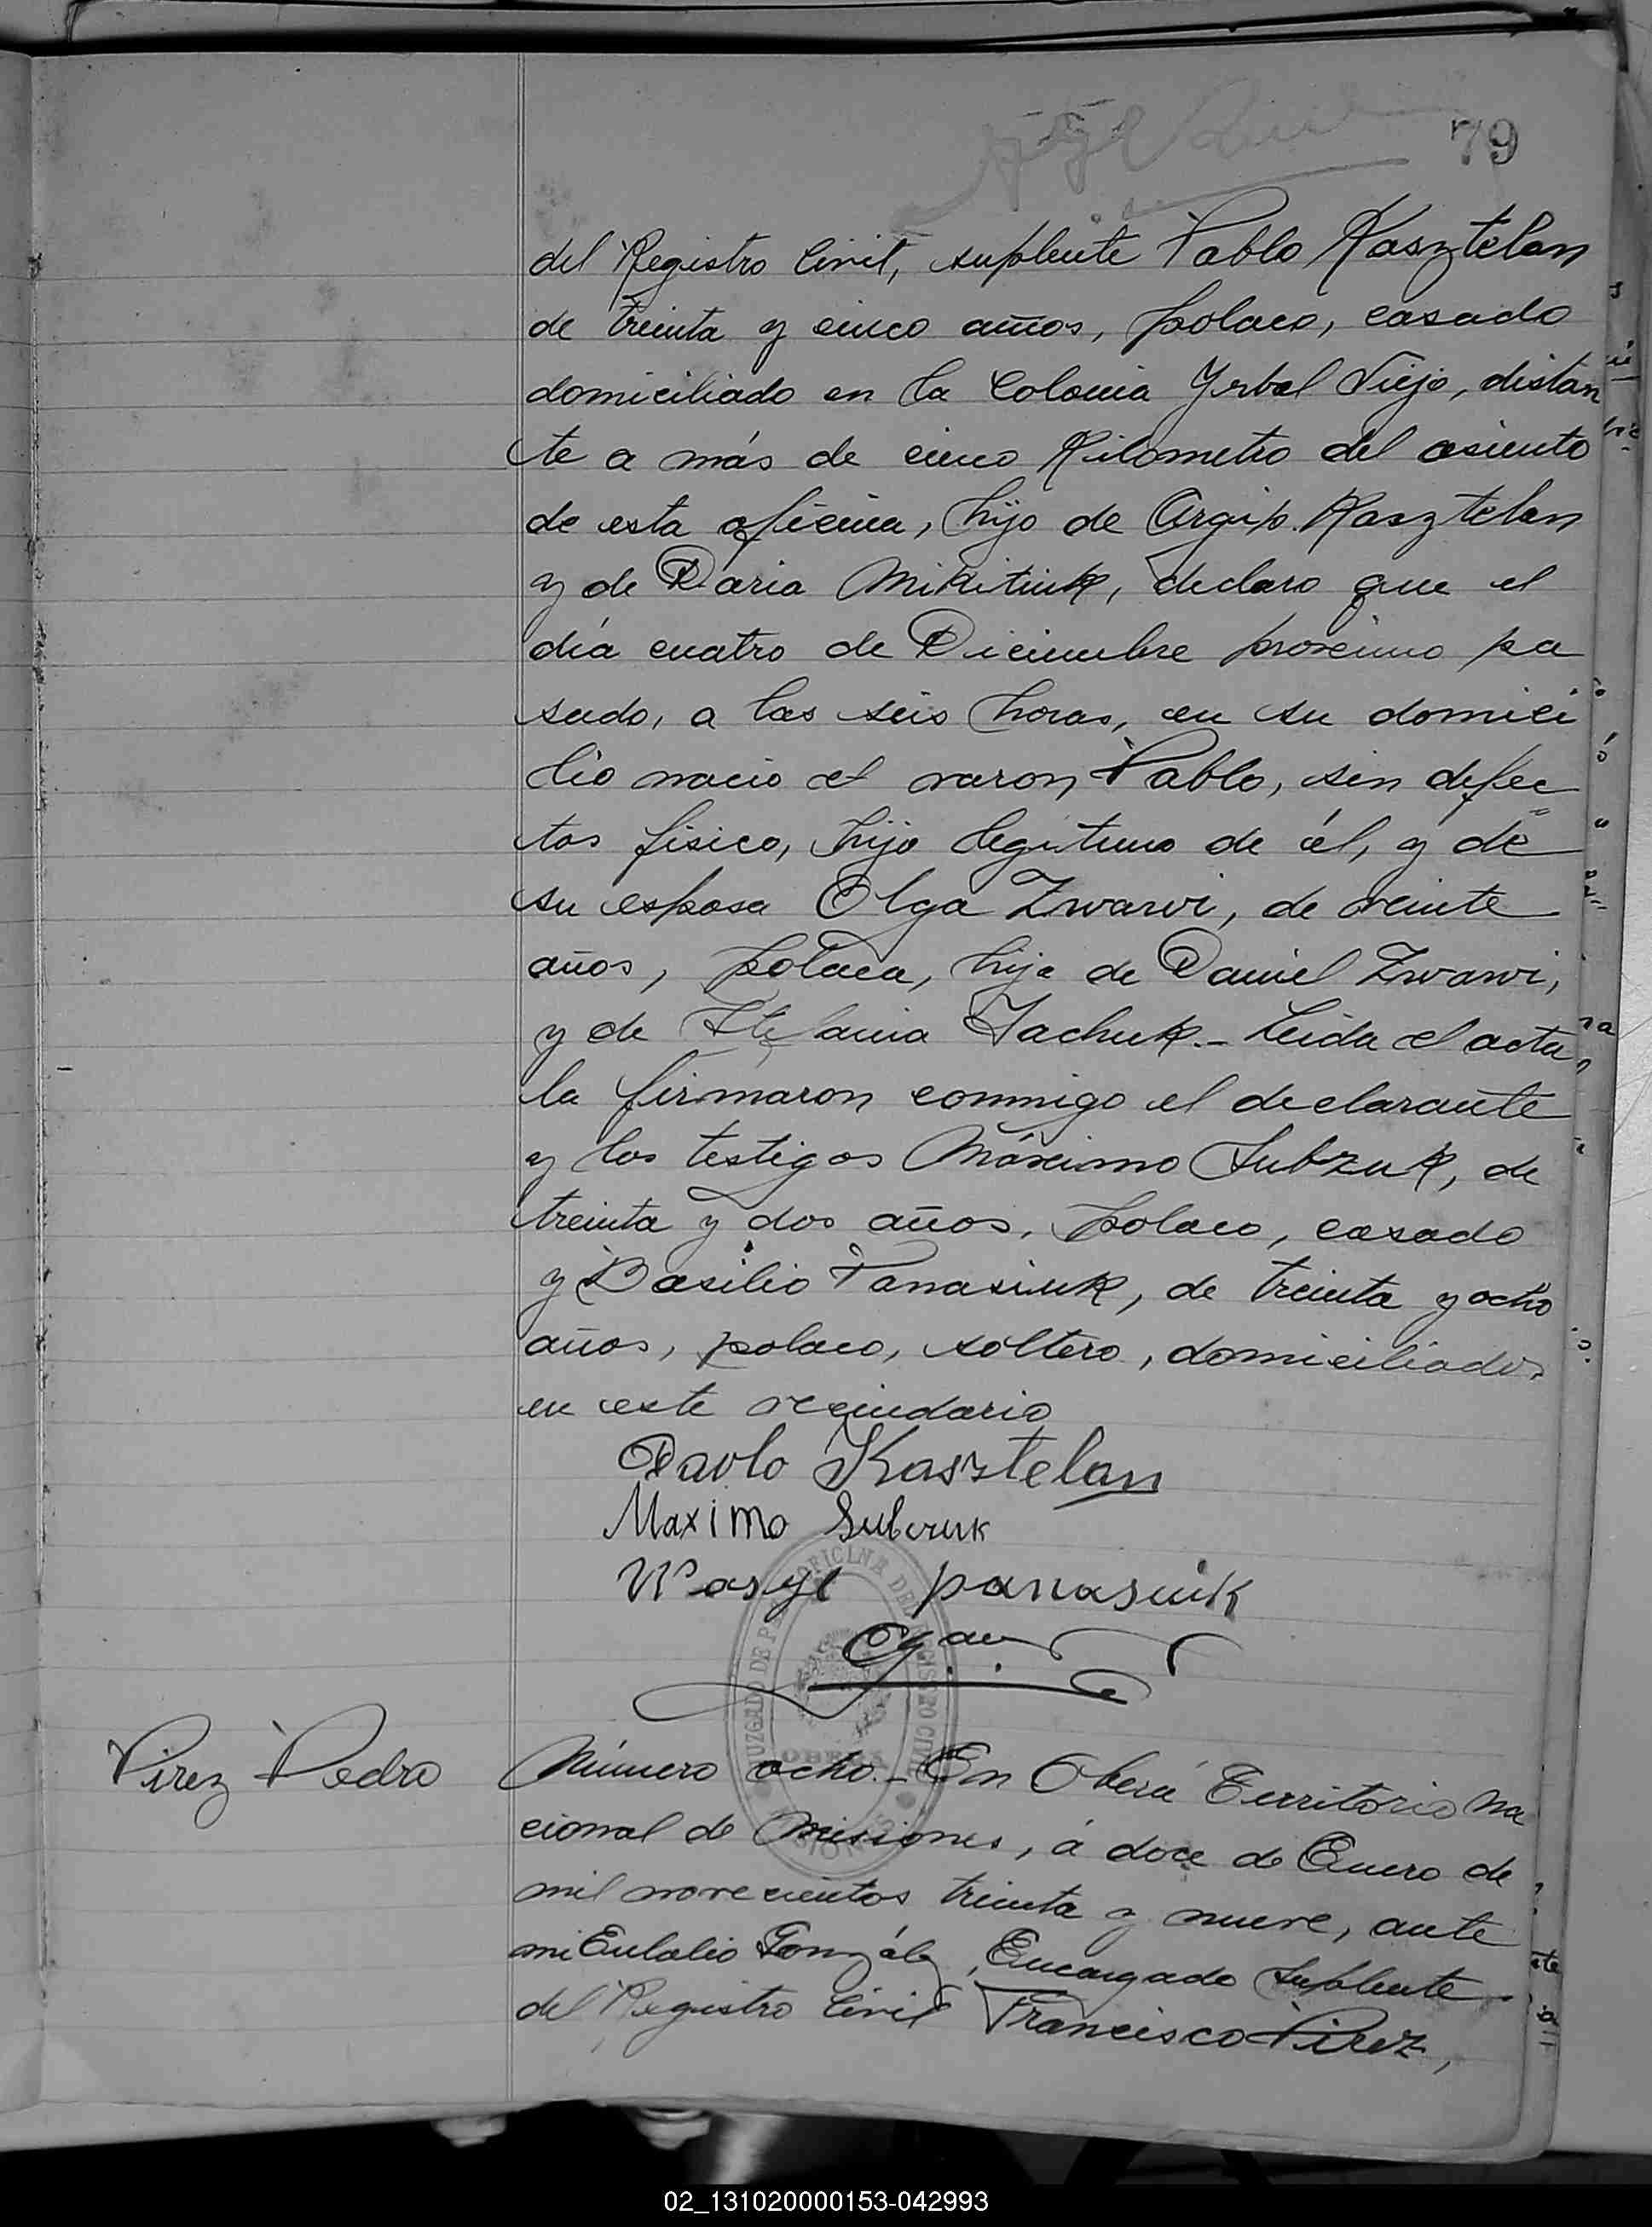 79
del Registro Civil, suplente Pablo Kasztelan
de treinta y cinco años, polaco, casado
domiciliado en la Colonia Yerbal Viejo, distan
te a más de cinco Kilometro del asiento
de esta oficina, hijo de Argip Kasztelan
y de Daria Mikitiuk, declaro que el
día cuatro de Diciembre proximo pa
sado, a las seis horas, en su domici
lio nacio el varon, Pablo, sin defec
tos fisico, hijo legitimo de él, y de
su esposa Olga Zwarvi, de veinte
años, polaca, hija de Daniel Zwarvi,
y de Stefania Jachuk.- Leida el acta
la firmaron conmigo el declarante
y los testigos Máximo Subzuk, de
treinta y dos años, polaco, casado
y Basilio Panasiuk, de treinta y ocho
años, polaco, soltero, domiciliados
en este vecindario
Pavlo Kasztelan
Maximo Subczuk
Wasyl panasiuk
JUZGADO DE PAZ OFICINA DEL REGISTRO CIVIL
OBERA
MISIONES
Pirez Pedro
Número ocho.- En Oberá Territorio Na
cional de Misiones, á doce de Enero de
mil novecientos treinta y nueve, ante
mi Eulalio González, Encargado Suplente
del Registro Civil Francisco Pirez,
02_131020000153-042993